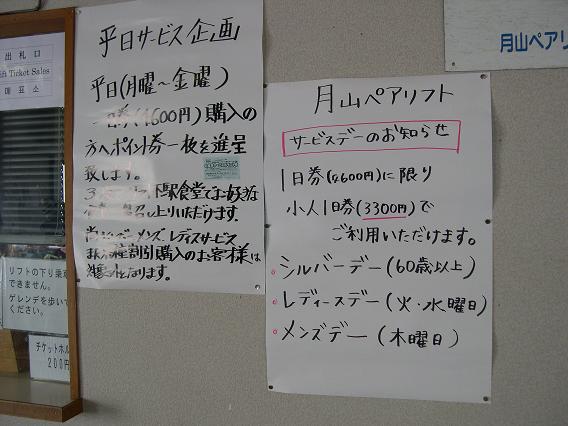 出札口
Lift Ticket Sales
매표소
リフトの下り乗車
できません。
ゲレンデを歩いて
ください。
チケットホル
200円
平日サービス企画
平日(月曜～金曜)
一日券(4600円)購入の
方へポイント券一枚を進呈
致します。
下駅食堂でお好きな
召し上りいただけます。
尚シルバー、メンズ、レディスサービス
種割引購入のお客様は
対象外となります。
月山ペアリフト
サービスデーのお知らせ
1日券(4600円)に限り
小人1日券(3300円)で
ご利用いただけます。
シルバーデー(60歳以上)
レディースデー(火・水曜日)
メンズデー(木曜日)
月山ペアリ